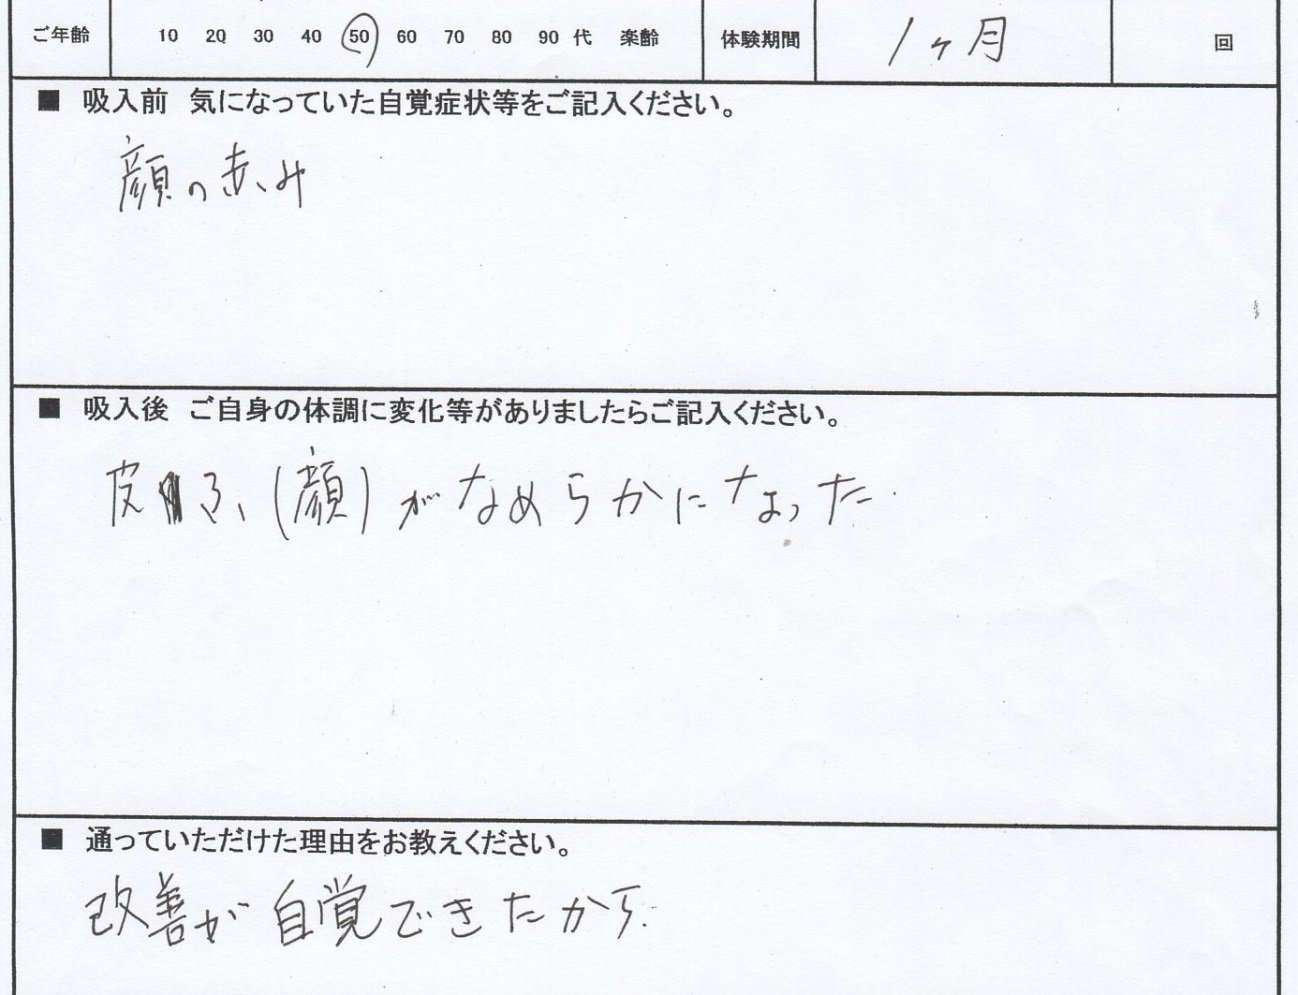 ご年齢 10 20 30 40 50 60 70 80 90 代 楽齢 体験期間 1ヶ月 回
■ 吸入前 気になっていた自覚症状等をご記入ください。
顔の赤み
■ 吸入後 ご自身の体調に変化等がありましたらご記入ください。
皮ふ(顔)がなめらかになった.
■ 通っていただけた理由をお教えください。
改善が自覚できたから.